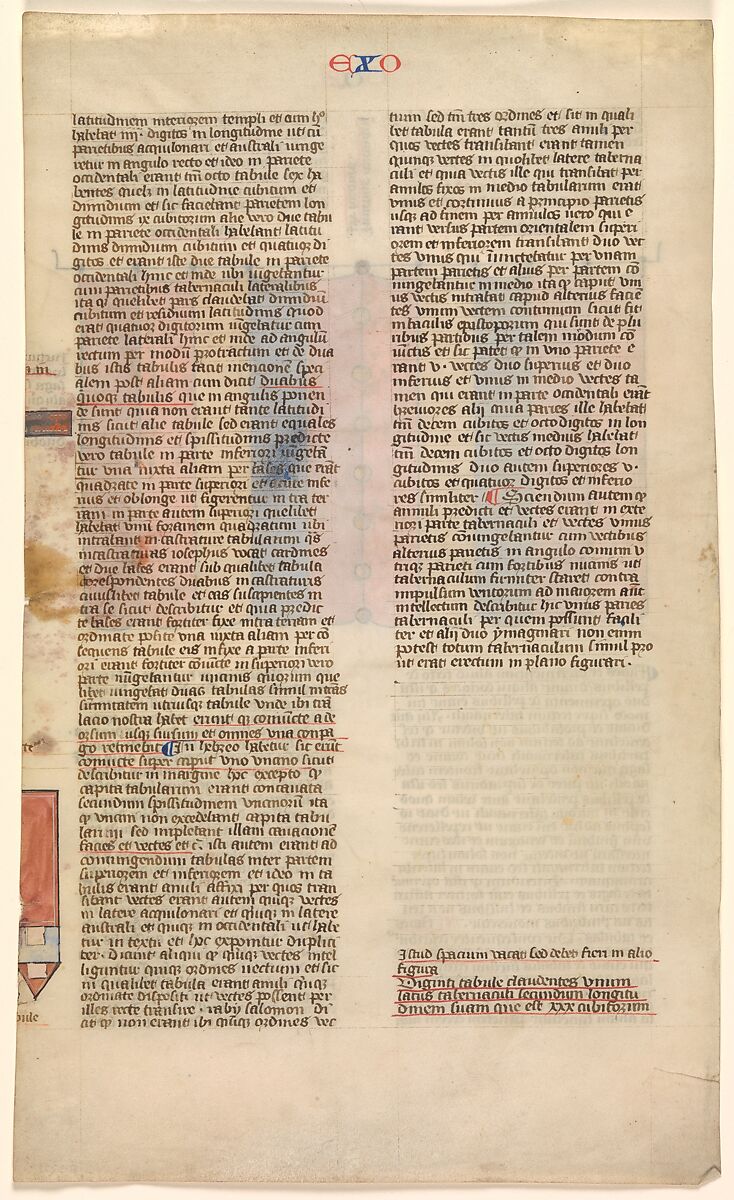 EXO
latitudinem interiorem templi et cum hoc
habebat iiii. digitos in longitudine ut cum
parietibus acquilonari et australi iunge
retur in angulo recto et ideo in pariete
occidentali erant tm octo tabule sex ha
bentes quelz in latitudine cubitum et
dimidium et sic faciebant parietem lon
gitudinis ix cubitorum alie vero due tabu
le in pariete occidentali habebant latitu
dinis dimidium cubitum et quatuor di
gitos et erant iste due tabule in pariete
occidentali hinc et inde ubi iungebantur
cum parietibus tabernaculi lateralibus
ita qz quelibet pars claudebat dimidiu
cubitum et residuum latitudinis quod
erat quatuor digitorum iugebatur cum
pariete laterali hinc et inde ad angulu
rectum per modu protractum et de dua
bus istis tabulis facit mencione speci
alem post aliam cum dicit duabus
quoqz tabulis que in angulis ponen
de sunt quia non erant tante latitudi
nis sicut alie tabule sed erant equales
longitudinis et spissitudinis predicte
vero tabule in parte inferiori iugeba
tur una iuxta aliam per bases que erat
quadrate in parte superiori et acute infe
rius et oblonge ut figerentur in tra ter
ram in parte autem superiori quelibet
habebat unu foramen quadratum ubi
intrabant incastrature tabularum qs
incastraturas iosephus vocat cardines
et due bases erant sub qualibet tabula
correspondentes duabus incastraturis
cuiuslibet tabule et eas suscipientes in
tra se sicut describitur et quia predic
te bases erant fortiter fixe intra terram et
ordinate posite una iuxta aliam per co
sequens tabule eis infixe a parte inferi
ori erant fortiter coniuncte in superiori vero
parte iungebantur uncinis quorum que
libet iungebat duas tabulas simul intras
summitatem utriusqz tabule unde ubi tra
lacio nostra habet erunt qz coniuncte a de
orsum usqz sursum et omnes una conpa
go retinebit ¶ In hebreo habetur sic erut
coniuncte super caput uno uncino sicut
describitur in margine hoc excepto qz
capita tabularum erant concavata
secundum spissitudinem uncinorum ita
qz uncini non excedebant capita tabu
larum sed implebant illam cavacione
facies et vectes et c. isti autem erant ad
coniungendum tabulas inter partem
superiorem et inferiorem et ideo in ta
bulis erant anuli affixi per quos tran
sibant vectes erant autem quiqz vectes
in latere acquilonari et quiqz in latere
australi et quiqz in occidentali ut habe
tur in textu et hoc exponitur duplici
ter. dicunt aliqui qz quiqz vectes intel
liguntur quinqz ordines vectium et sic
in qualibet tabula erant anuli quiqz
ordinate dispositi ut vectes possent per
illos recte transire. raby salomon di
cit qz non erant ibi quiqz ordines vec
tium sed tm tres ordines et sic in quali
bet tabula erant tantu tres anuli per
quos vectes transibant erant tamen
quinqz vectes in quolibet latere taberna
culi et quia vectis ille qui transibat per
anulos fixos in medio tabularum erat
unus et continuus a principio parietis
usqz ad finem per annulos vero qui e
rant versus partem orientalem superi
orem et inferiorem transibant duo vec
tes unus qui iunctebatur per unam
partem parietis et alius per partem co
iungebantur in medio ita qz caput uni
us vectis intrabat capud alterius facie
tes unum vectem continuum sicut fit
in baculis episcoporum qui sunt de plu
ribus partibus per talem modum co
iunctis et sic patet qz in uno pariete e
rant v. vectes duo superius et duo
inferius et unus in medio vectes ta
men qui erant in parte occidentali erat
breviores alii quia paries ille habebat
tm decem cubitos et octo digitos in lon
gitudine et sic vectis medius habebat
tm decem cubitos et octo digitos lon
gitudinis duo autem superiores v.
cubitos et quatuor digitos et inferio
res similiter ¶ Sciendum autem qz
annuli predicti et vectes erant in exte
riori parte tabernaculi et vectes unius
parietis coniungebantur cum vectibus
alterius parietis in angulo comuni u
triqz parieti cum fortibus uncinis ut
tabernaculum firmiter staret contra
impulsum ventorum ad maiorem aut
intellectum describitur hic unius paries
tabernaculi per quem possunt facili
ter et alii duo ymaginari non enim
potest totum tabernaculum simul pro
ut erat erectum in plano figurari.
Istud spacium vacat sed debet fieri in alio
figura
Viginti tabule claudentes unum
latus tabernaculi secundum longitu
dinem suam que est xxx cubitorum